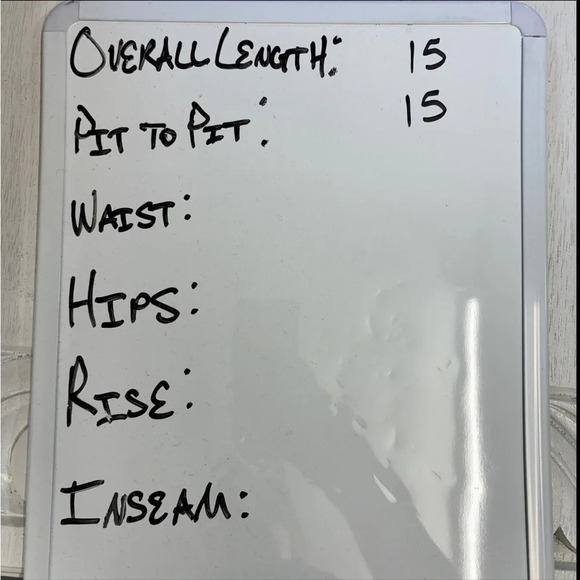 OVERALL LENGTH: 15
PIT TO PIT: 15
WAIST:
HIPS:
RISE:
INSEAM: